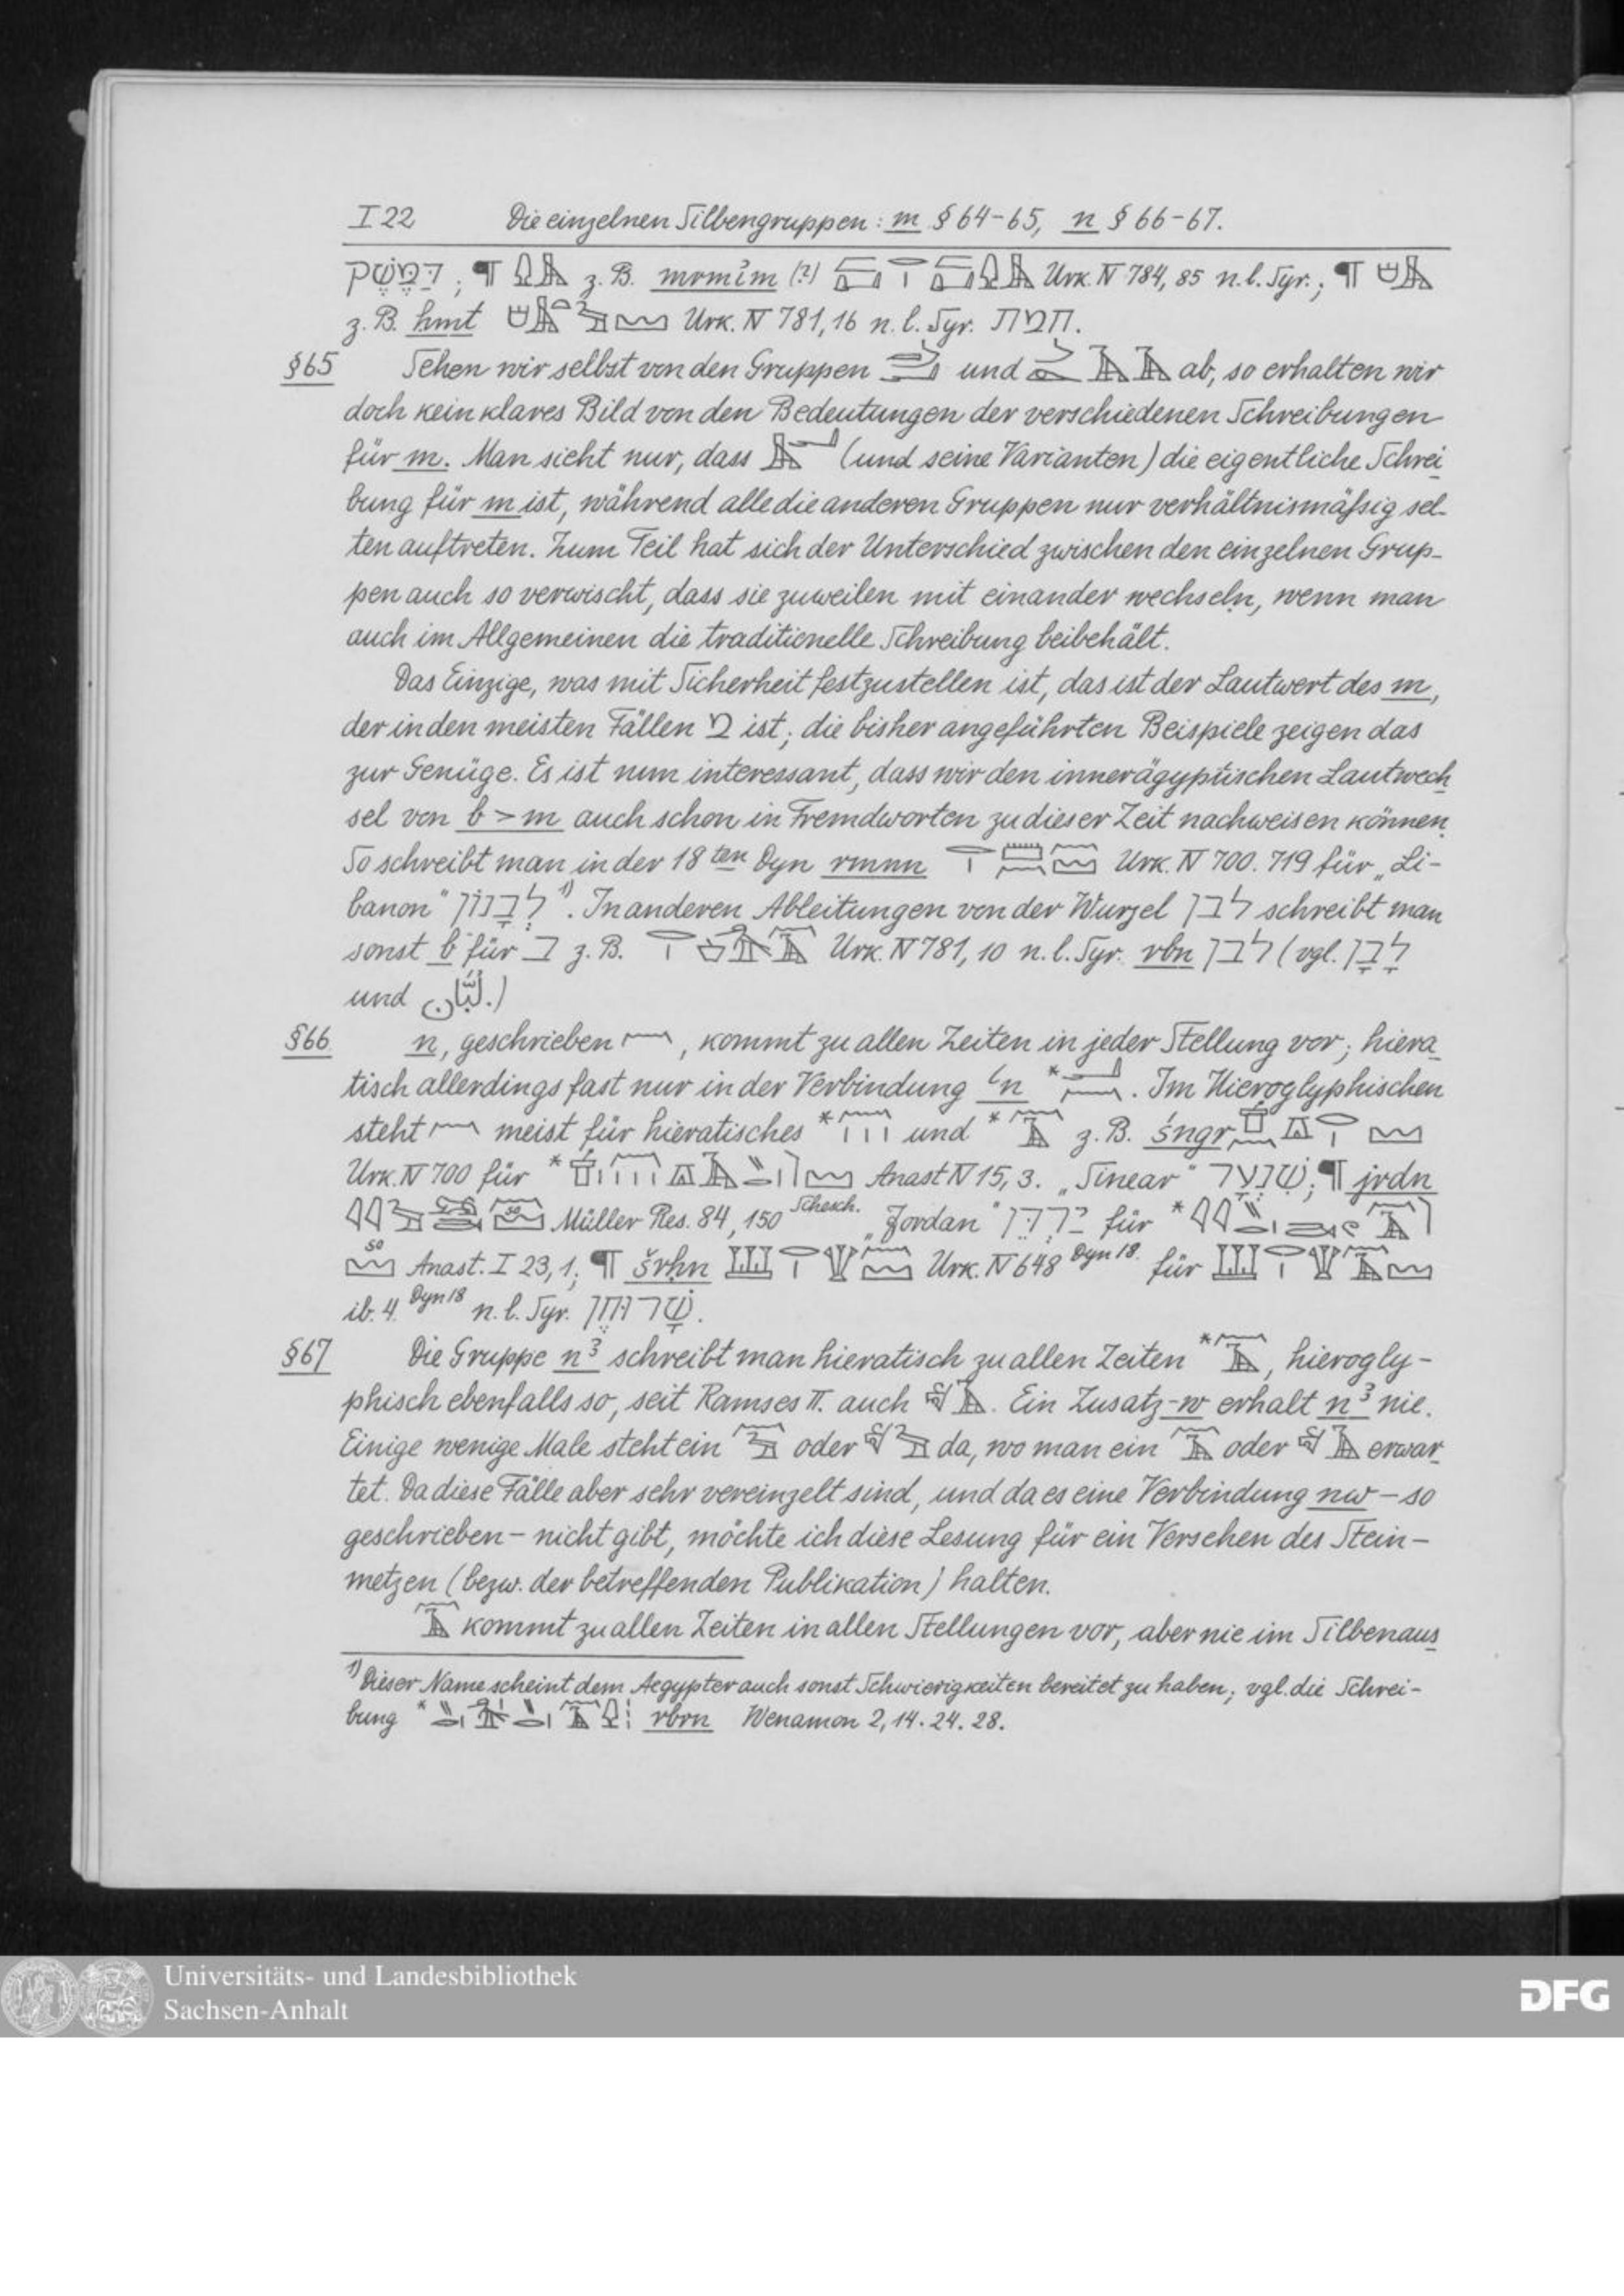 I 22 Die einzelnen Silbengruppen: m § 64-65, n § 66-67.
דַּמֶּשֶׂק; ¶ z. B. mrmim (?) Urk. IV 784, 85 n. l. Syr.; ¶
z. B. hmt Urk. IV 781, 16 n. l. Syr. חמת.
§65 Sehen wir selbst von den Gruppen und ab, so erhalten wir
doch kein klares Bild von den Bedeutungen der verschiedenen Schreibungen
für m. Man sieht nur, dass (und seine Varianten) die eigentliche Schrei
bung für m ist, während alle die anderen Gruppen nur verhältnismäßig sel-
ten auftreten. Zum Teil hat sich der Unterschied zwischen den einzelnen Grup-
pen auch so verwischt, dass sie zuweilen mit einander wechseln, wenn man
auch im Allgemeinen die traditionelle Schreibung beibehält.
Das Einzige, was mit Sicherheit festzustellen ist, das ist der Lautwert des m,
der in den meisten Fällen מ ist; die bisher angeführten Beispiele zeigen das
zur Genüge. Es ist nun interessant, dass wir den innerägyptischen Lautwech
sel von b > m auch schon in Fremdworten zu dieser Zeit nachweisen können.
So schreibt man in der 18ten Dyn rmnn Urk. IV 700. 719 für „Li-
banon" לְבָנוֹן 1). In anderen Ableitungen von der Wurzel לבן schreibt man
sonst b für ב z. B. Urk. IV 781, 10 n. l. Syr. rbn לבן (vgl. לָבָן
und لُبَّان.)
§66. n, geschrieben , kommt zu allen Zeiten in jeder Stellung vor; hiera
tisch allerdings fast nur in der Verbindung ʿn *. Im Hieroglyphischen
steht meist für hieratisches * und * z. B. śngr
Urk. IV 700 für * Anast IV 15, 3. „Sinear" שִׁנְעָר; ¶ jrdn
Müller Res. 84, 150 Schesch. „Jordan" יַרְדֵּן für *
so Anast. I 23, 1; ¶ šrḥn Urk. IV 648 Dyn 18. für
ib. 4. Dyn 18 n. l. Syr. שָׁרוּחֶן.
§67 Die Gruppe n3 schreibt man hieratisch zu allen Zeiten *, hierogly-
phisch ebenfalls so, seit Ramses II. auch . Ein Zusatz-w erhalt n3 nie.
Einige wenige Male steht ein oder da, wo man ein oder erwar
tet. Da diese Fälle aber sehr vereinzelt sind, und da es eine Verbindung nw - so
geschrieben - nicht gibt, möchte ich diese Lesung für ein Versehen des Stein-
metzen (bezw. der betreffenden Publikation) halten.
kommt zu allen Zeiten in allen Stellungen vor, aber nie im Silbenaus
1) Dieser Name scheint dem Aegypter auch sonst Schwierigkeiten bereitet zu haben; vgl. die Schrei-
bung * rbrn Wenamon 2, 14. 24. 28.
Universitäts- und Landesbibliothek
Sachsen-Anhalt
DFG